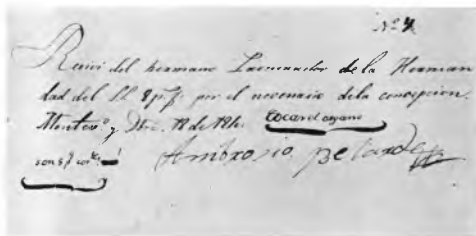 Nº 4
Recivi del hermano Procurador de la Herman
dad del SS. 8 p.s f.s por el novenario dela concepcion.
Montev.º y Dbre. 12 de
tocar el organo
son 8 p.s corr.tes
Ambrosio Belarde